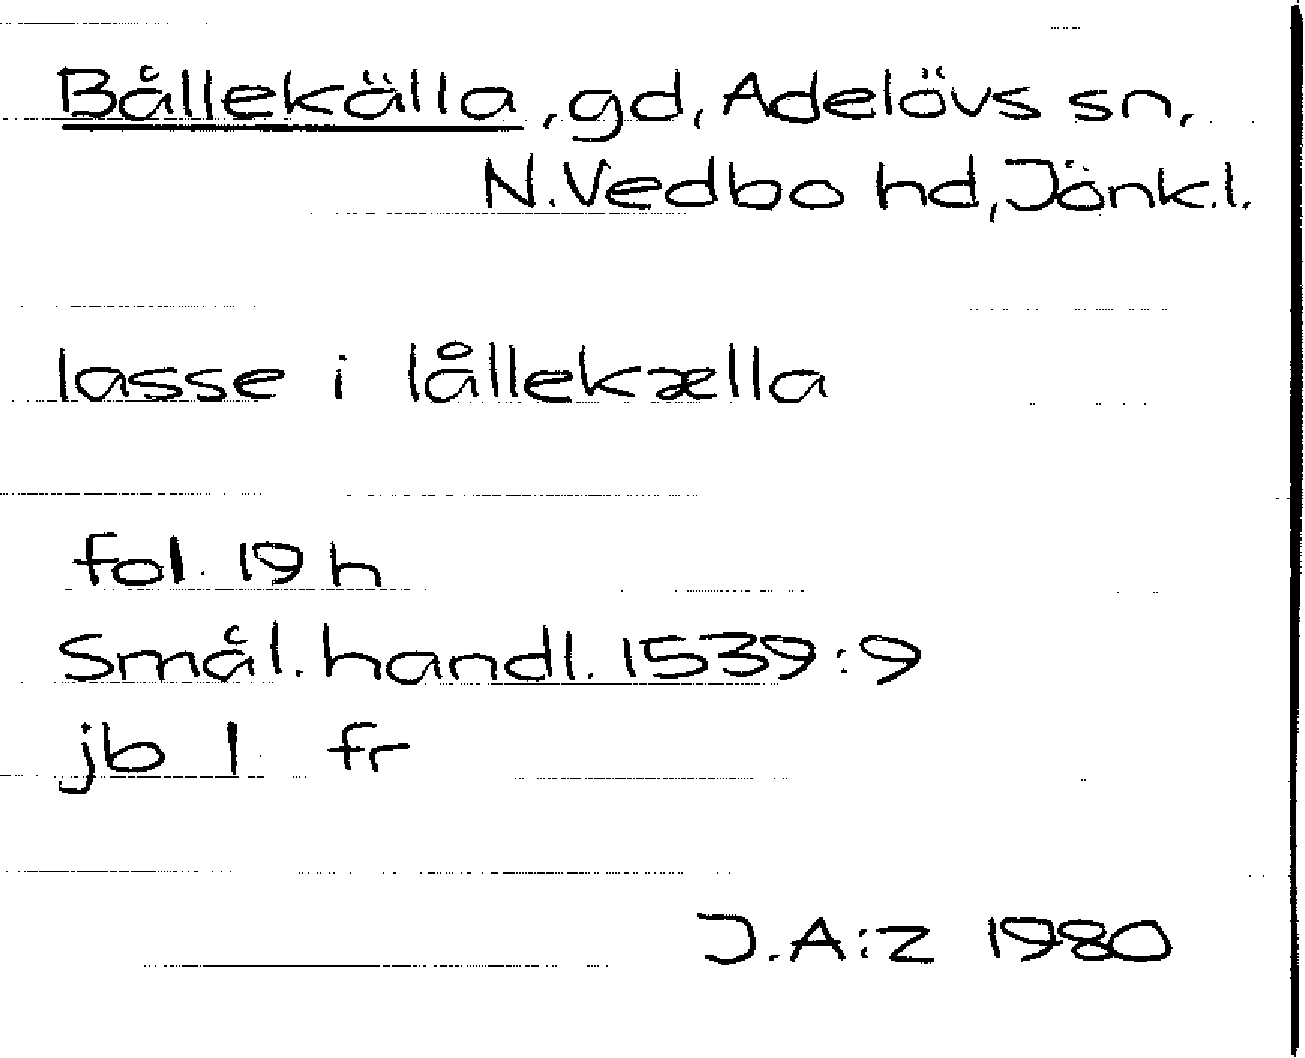 Bållekälla, gd, Adelövs sn,
N. Vedbo hd, Jönk.l.
lasse i lållekælla
fol. 19 h
Smål. handl. 1539:9
jb 1 fr
J.A:z 1980